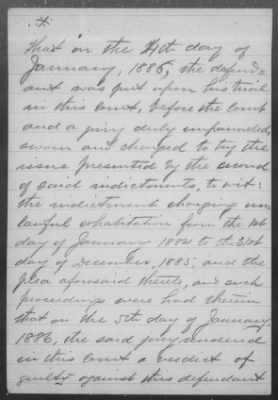 That on the 4th day of
January, 1886, the defend-
ant was put upon his trial
in this Court, before the Court
and a jury duly impanneled,
sworn and charged to try the
issue presented by the second
of said indictments, to wit:
the indictment charging un-
lawful cohabitation from the 1st
day of January 1884 to the 31st
day of December, 1885, and the
plea aforesaid thereto, and such
proceedings were had therein
that on the 5th day of January
1886, the said jury rendered
in this Court a verdict of
guilty against this defendant